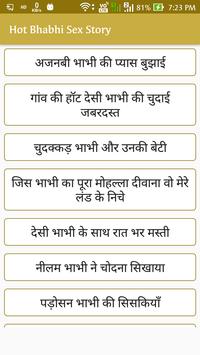 7:23 PM
Hot Bhabhi Sex Story
अजनबी भाभी की प्यास बुझाई
गांव की हॉट देसी भाभी की चुदाई
जबरदस्त
चुदक्कड़ भाभी और उनकी बेटी
जिस भाभी का पूरा मोहल्ला दीवाना वो मेरे
लंड के निचे
देसी भाभी के साथ रात भर मस्ती
नीलम भाभी ने चोदना सिखाया
पड़ोसन भाभी की सिसकियाँ